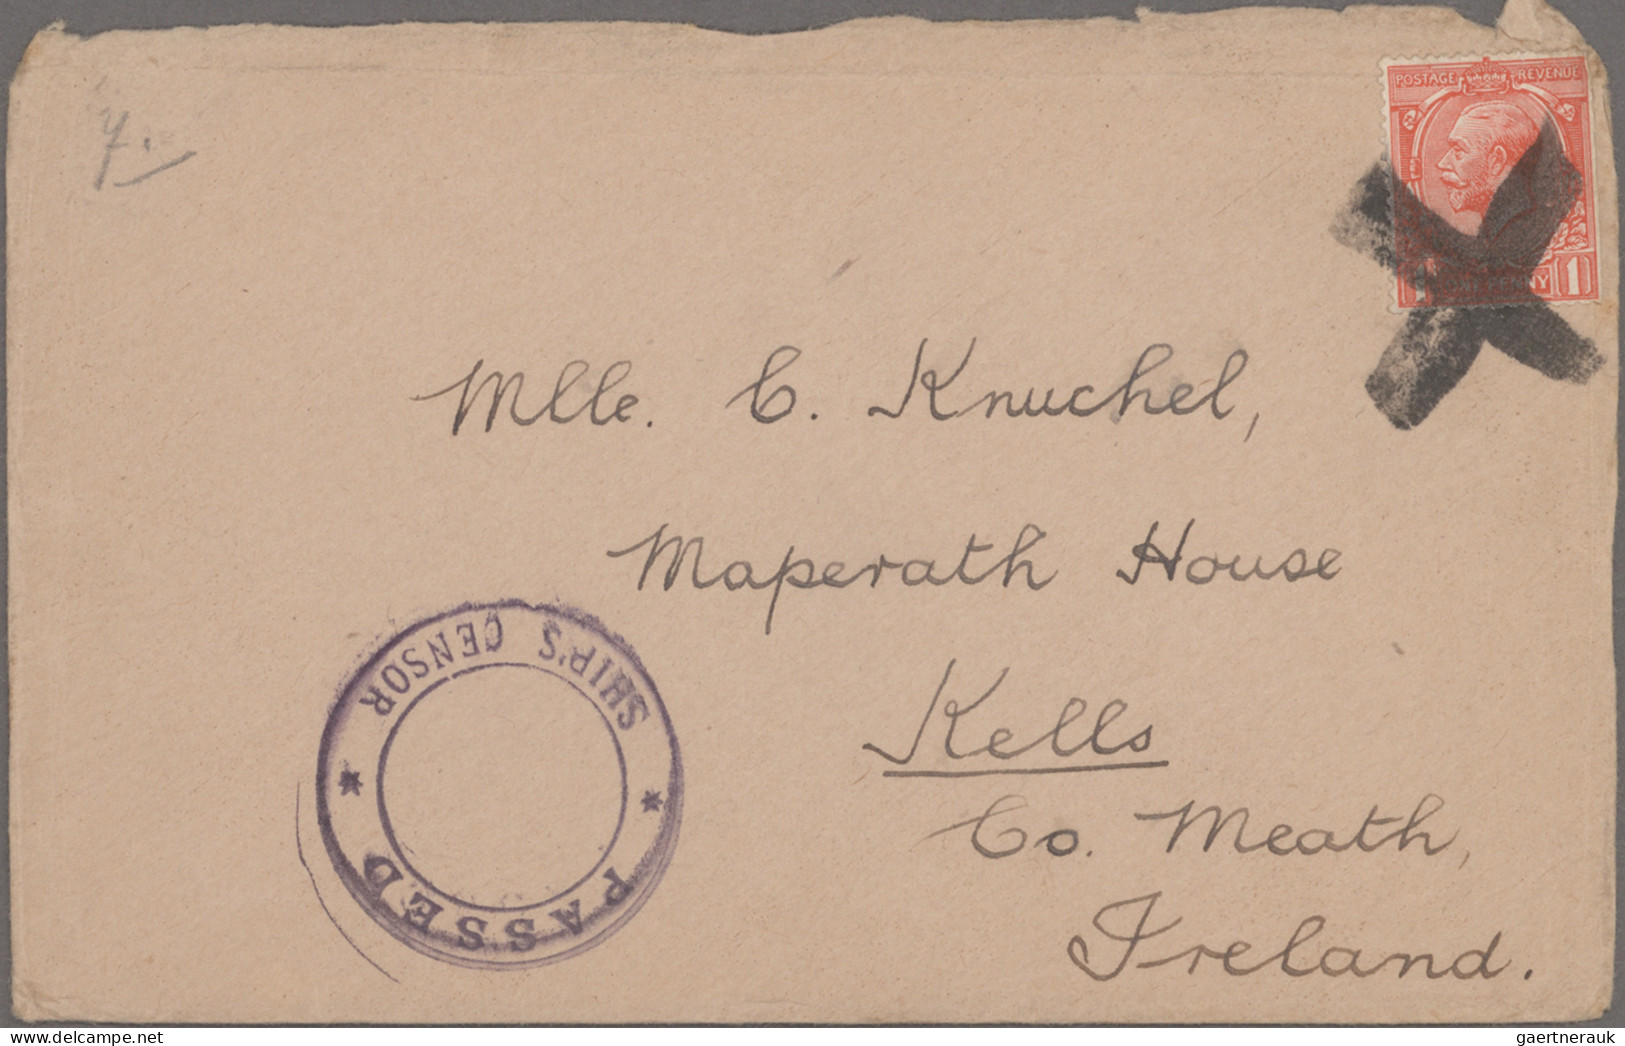 7.
POSTAGE REVENUE
1 PENNY 1
Mlle. C. Knuchel,
Maperath House
Kells
Co. Meath,
Ireland.
PASSED
* SHIP'S CENSOR *
gaertnerauk